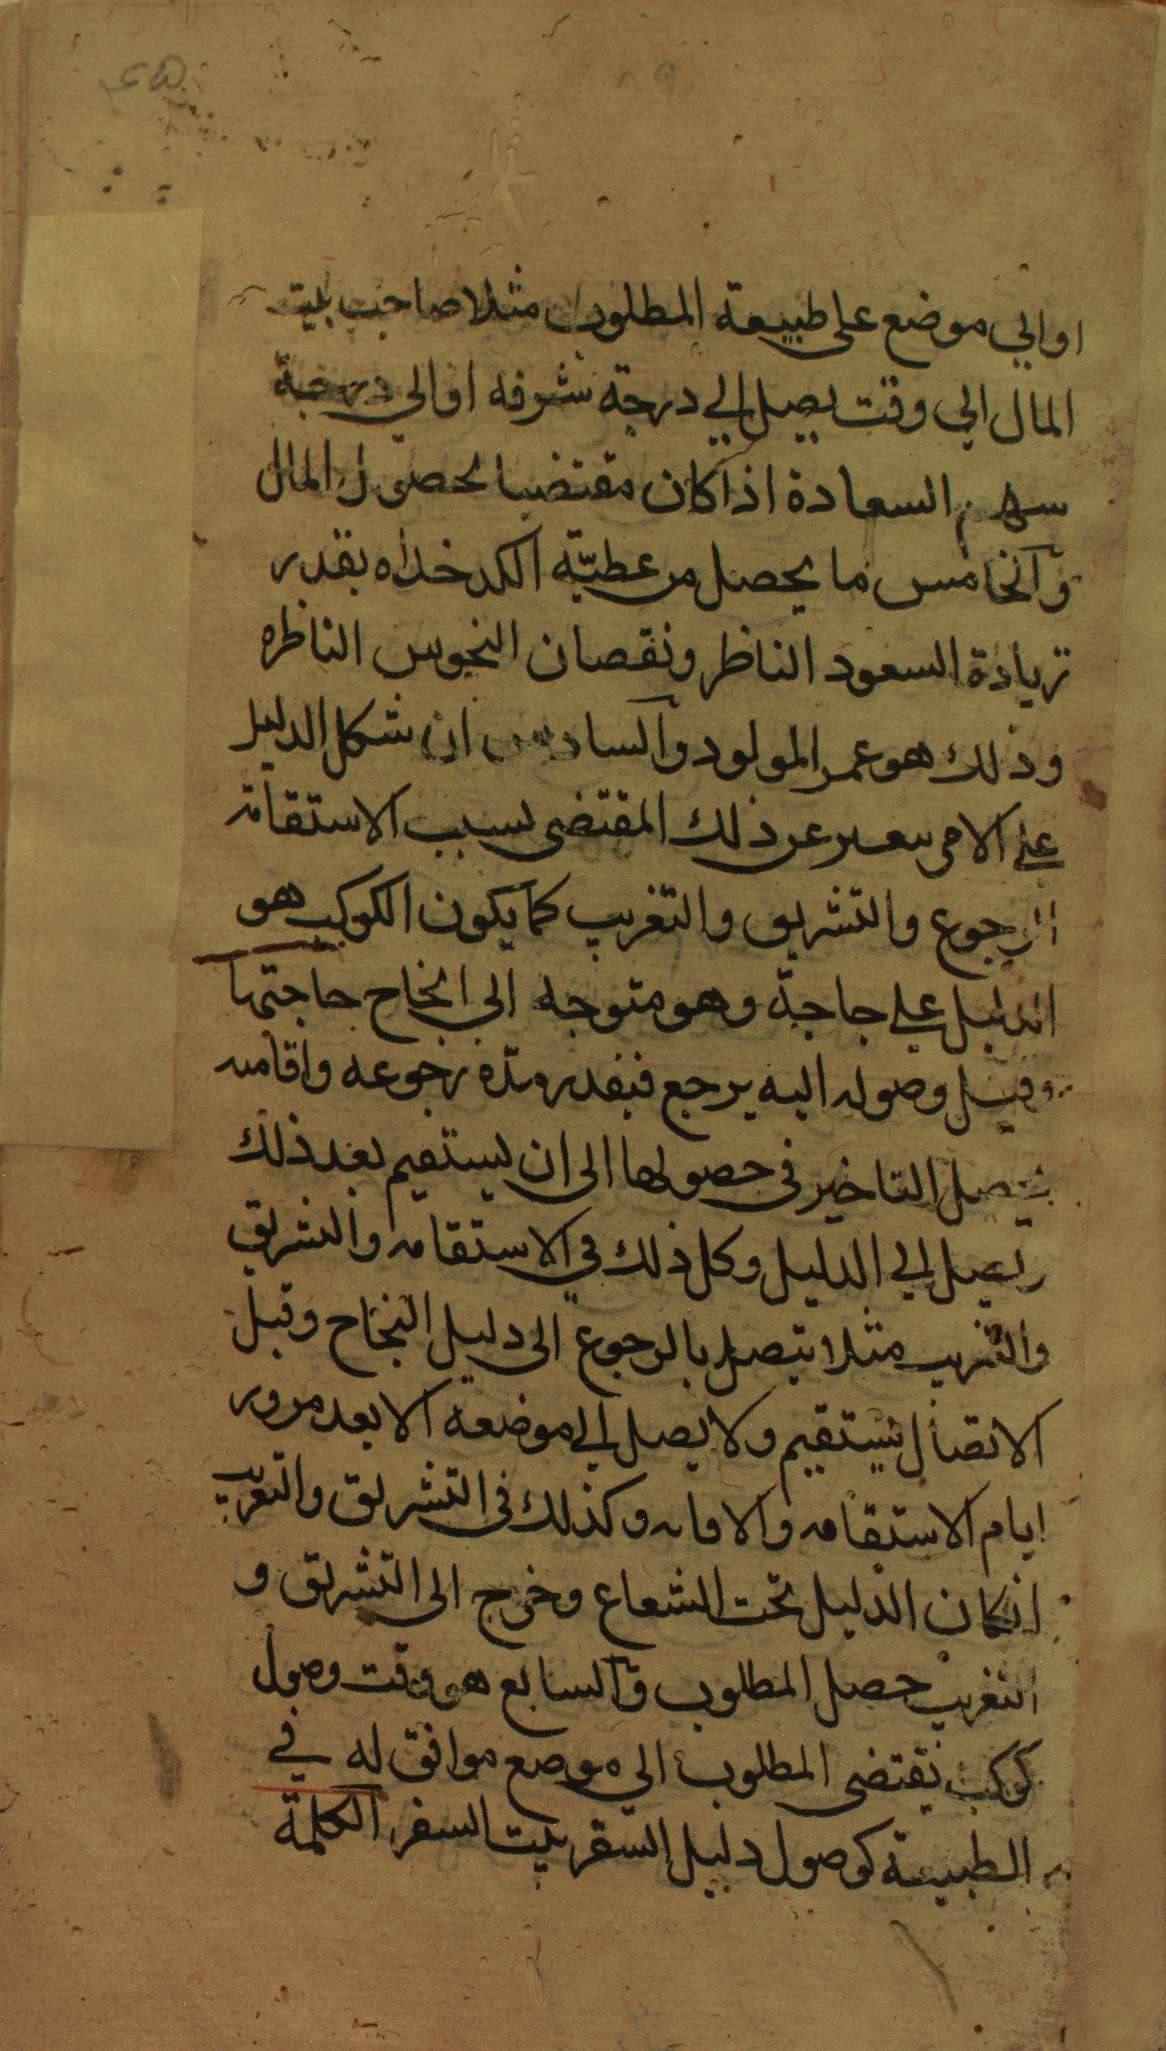 اوالي موضع على طبيعة المطلوب مثلا صاحب بيت
المال الي وقت يصل الي درجة شرفه اوالي درجة
سهم السعادة اذا كان مقتضيا لحصول المال
والخامس ما يحصل من عطيّة الكدخداه بقدر
زيادة السعود الناظر ونقصان النحوس الناظره
وذلك هو عمر المولود والسادس ان شكل الدليل
على الامر عن ذلك المقتضى بسبب الاستقامة
الرجوع والتشريق والتغريب كما يكون الكوكب هو
الدليل على حاجة وهو متوجه الي انجاح حاجتها
وقبل وصوله اليه يرجع فبقدر مدّة رجوعه واقامته
يحصل التاخير في حصولها الى ان يستقيم بعد ذلك
يصل الي الدليل وكل ذلك في الاستقامه والتشريق
والتغريب مثلا يتصل بالرجوع الى دليل النجاح وقبل
الاتصال يستقيم ولا يصل الي موضعه الا بعد مرور
ايام الاستقامه والاقامه وكذلك في التشريق والتغريب
انكان الدليل تحت الشعاع وخرج الى التشريق و
التغريب حصل المطلوب والسابع هو وقت وصول
كوكب يقتضى المطلوب الي موضع موافق له في
الطبيعة كوصول دليل السفر بيت السفر الكلمة